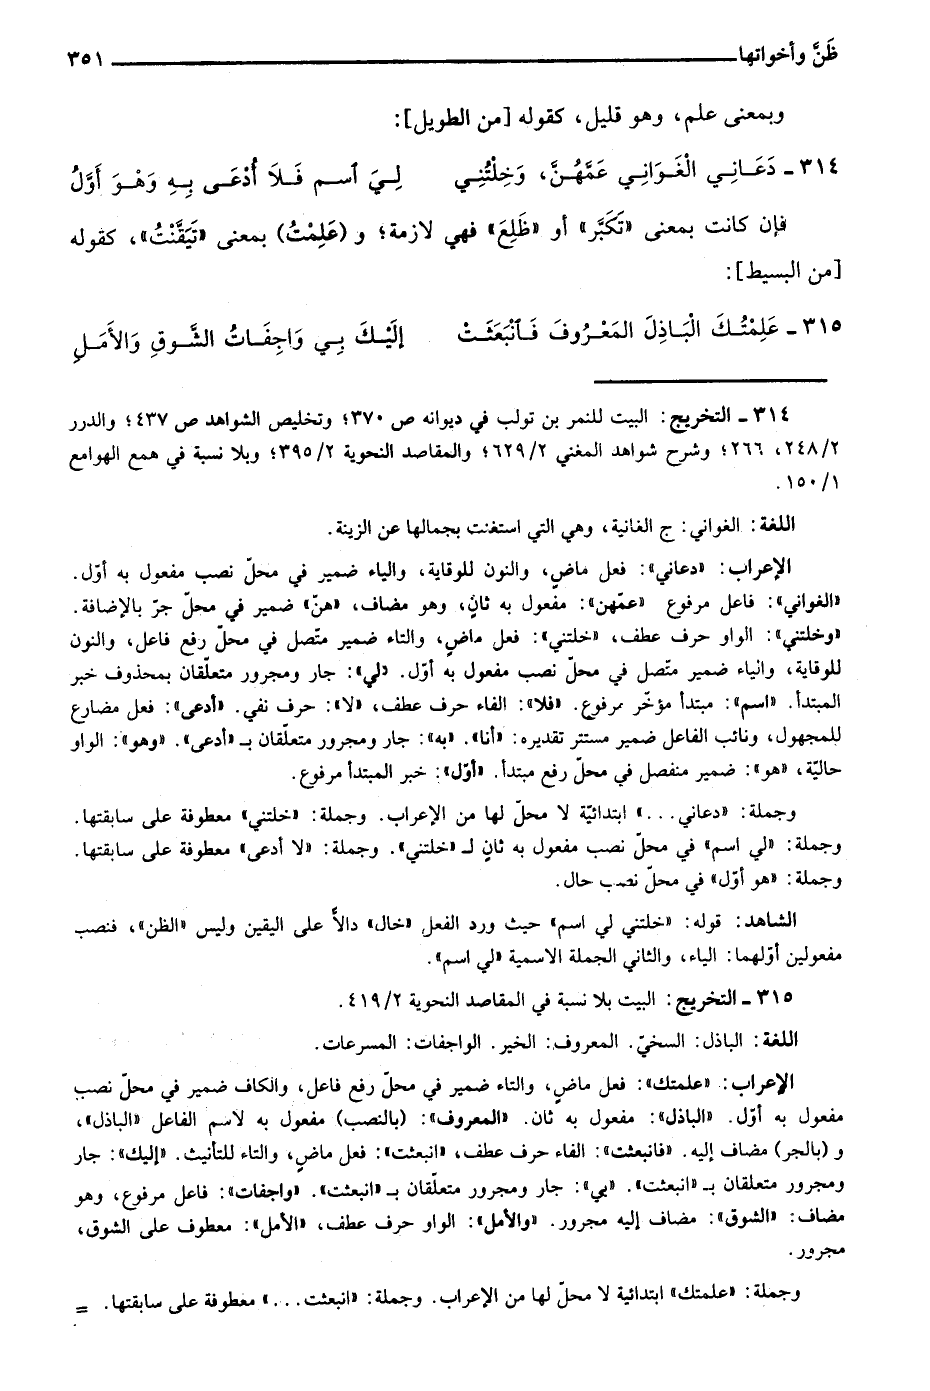 ظَنَّ وأخواتها ٣٥١
وبمعنى علم، وهو قليل، كقوله [من الطويل]:
٣١٤ ـ دَعَـانِـي الْغَوَانِي عَمَّهُنَّ، وَخِلْتُنِي لِيَ ٱسـم فَـلَا أُدْعَـى بِـهِ وَهْـوَ أَوَّلُ
فإن كانت بمعنى «تَكَبَّر» أو «ظَلِعَ» فهي لازمة؛ و (عَلِمْتُ) بمعنى «تَيَقَّنْتُ»، كقوله
[من البسيط]:
٣١٥ ـ عَلِمْتُـكَ الْبَاذِلَ المَعْرُوفَ فَـٱنْبَعَثَـتْ إلَيْـكَ بِـي وَاجِفَـاتُ الشَّوقِ وَالأَمَـلِ
٣١٤ ـ التخريج: البيت للنمر بن تولب في ديوانه ص ٣٧٠؛ وتخليص الشواهد ص ٤٣٧؛ والدرر
٢٤٨/٢، ٢٦٦؛ وشرح شواهد المغني ٦٢٩/٢؛ والمقاصد النحوية ٣٩٥/٢؛ وبلا نسبة في همع الهوامع
١٥٠/١.
اللغة: الغواني: ج الغانية، وهي التي استغنت بجمالها عن الزينة.
الإعراب: «دعاني»: فعل ماضٍ، والنون للوقاية، والياء ضمير في محلّ نصب مفعول به أوّل.
«الغواني»: فاعل مرفوع «عمّهن»: مفعول به ثانٍ، وهو مضاف، «هنّ» ضمير في محلّ جرّ بالإضافة.
«وخلتني»: الواو حرف عطف، «خلتني»: فعل ماضٍ، والتاء ضمير متّصل في محلّ رفع فاعل، والنون
للوقاية، والياء ضمير متّصل في محلّ نصب مفعول به أوّل. «لي»: جار ومجرور متعلّقان بمحذوف خبر
المبتدأ. «اسم»: مبتدأ مؤخّر مرفوع. «فلا»: الفاء حرف عطف، «لا»: حرف نفي. «أدعى»: فعل مضارع
للمجهول، ونائب الفاعل ضمير مستتر تقديره: «أنا». «به»: جار ومجرور متعلّقان بـ «أدعى». «وهو»: الواو
حاليّة، «هو»: ضمير منفصل في محلّ رفع مبتدأ. «أوّل»: خبر المبتدأ مرفوع.
وجملة: «دعاني...» ابتدائيّة لا محلّ لها من الإعراب. وجملة: «خلتني» معطوفة على سابقتها.
وجملة: «لي اسم» في محلّ نصب مفعول به ثانٍ لـ «خلتني». وجملة: «لا أدعى» معطوفة على سابقتها.
وجملة: «هو أوّل» في محلّ نصب حال.
الشاهد: قوله: «خلتني لي اسم» حيث ورد الفعل «خال» دالاًّ على اليقين وليس «الظن»، فنصب
مفعولين أوّلهما: الياء، والثاني الجملة الاسمية «لي اسم».
٣١٥ ـ التخريج: البيت بلا نسبة في المقاصد النحوية ٤١٩/٢.
اللغة: الباذل: السخيّ. المعروف: الخير. الواجفات: المسرعات.
الإعراب: «علمتك»: فعل ماضٍ، والتاء ضمير في محلّ رفع فاعل، والكاف ضمير في محلّ نصب
مفعول به أوّل. «الباذل»: مفعول به ثان. «المعروف»: (بالنصب) مفعول به لاسم الفاعل «الباذل»،
و (بالجر) مضاف إليه. «فانبعثت»: الفاء حرف عطف، «انبعثت»: فعل ماضٍ، والتاء للتأنيث. «إليك»: جار
ومجرور متعلقان بـ «انبعثت». «بي»: جار ومجرور متعلّقان بـ «انبعثت». «واجفات»: فاعل مرفوع، وهو
مضاف: «الشوق»: مضاف إليه مجرور. «والأمل»: الواو حرف عطف، «الأمل»: معطوف على الشوق،
مجرور.
وجملة: «علمتك» ابتدائية لا محلّ لها من الإعراب. وجملة: «انبعثت...» معطوفة على سابقتها. =